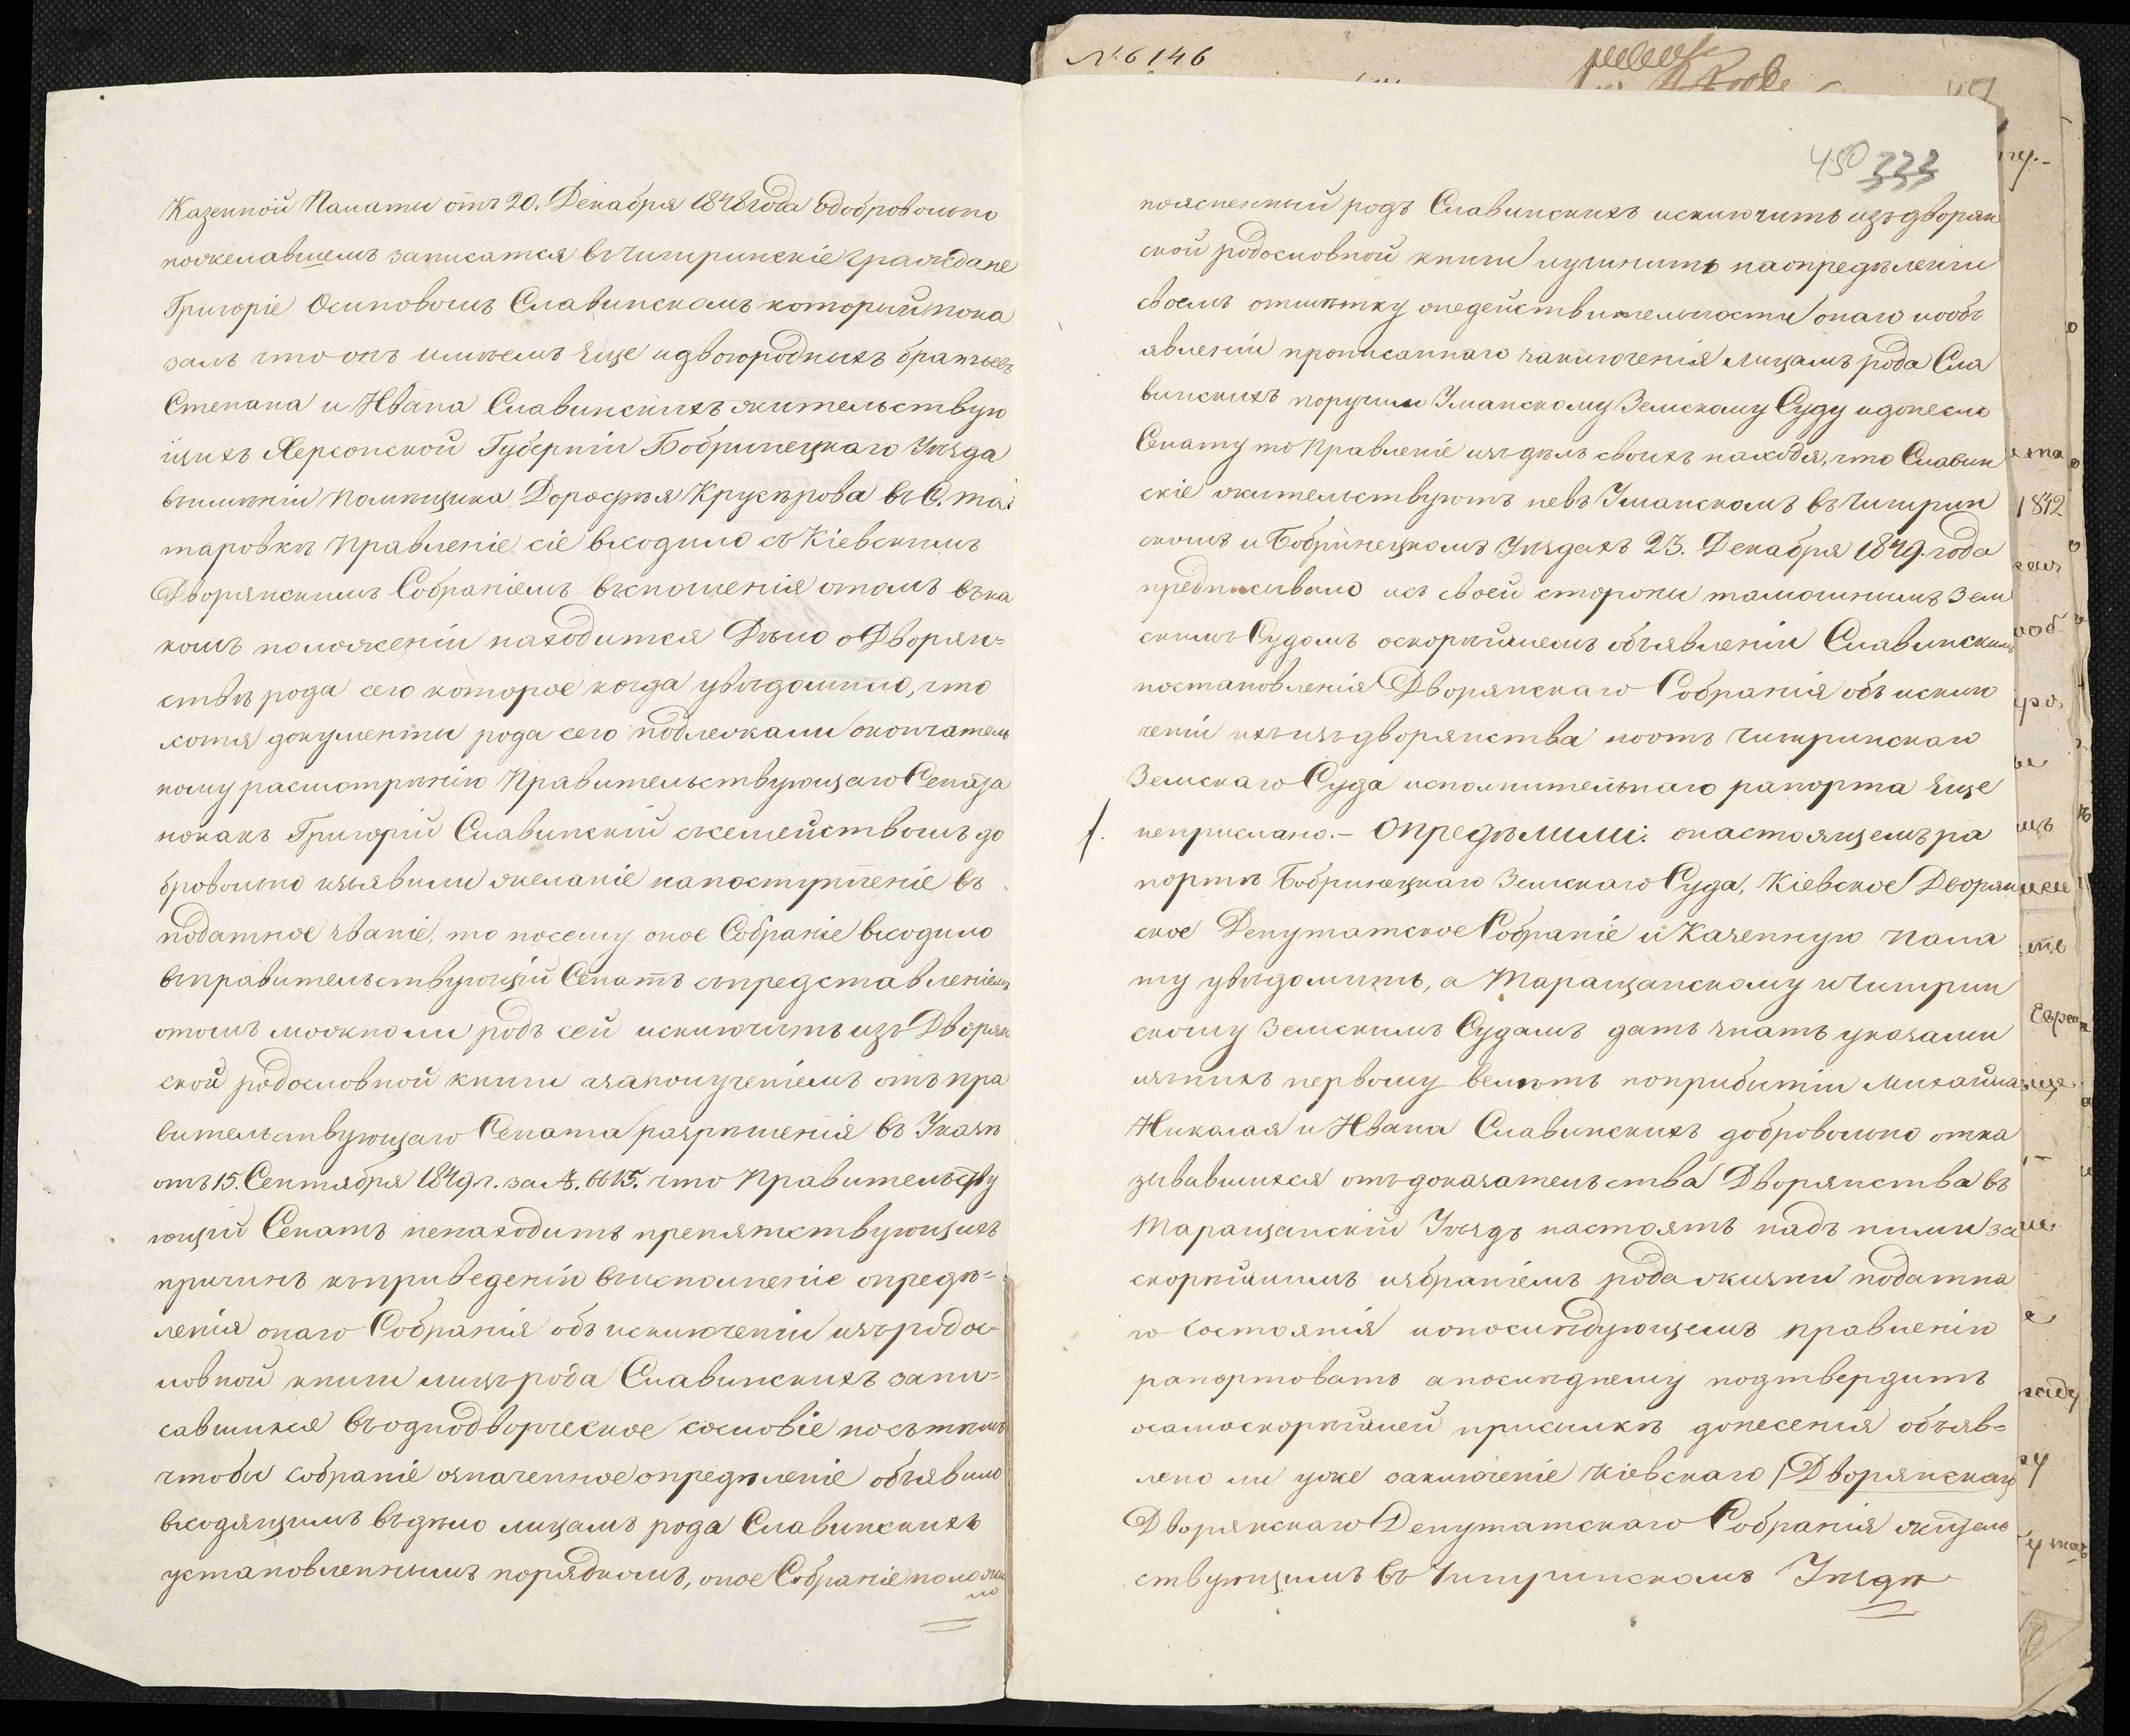 Казенной Палаты отъ 20. Декабря 1848 года о добровольно
пожелавшемъ записатся въ Чигиринскіе Граждане
Григоріе Осиповомъ Славинскомъ который пока
залъ что онъ имѣетъ еще и двоюродныхъ братьевъ
Степана и Ивана Славинскихъ жительствую
щихъ Херсонской Губерніи Бобринецкаго Уѣзда
въ имѣніи Помѣщика Дорофѣя Крусѣрова въ С. Та:
таровкѣ Правленіе сіе входило съ Кіевскимъ
Дворянскимъ Собраніемъ въ сношенія о томъ въ ка
комъ положеніи находится Дѣло о Дворян=
ствѣ рода сего которое когда увѣдомило, что
хотя документы рода сего подлежали окончатель
ному расмотрѣнію Правительствующаго Сената
но какъ Григорій Славинскій съ семействомъ до
бровольно изъявили желаніе на поступленіе въ
податное званіе, то посему оное Собраніе входило
въ правительствующій Сенатъ съ представленіемъ
о томъ можно ли родъ сей исключить изъ Дворян
ской родословной книги а за полученіемъ отъ пра
вительствующаго Сената разрѣшенія въ Указѣ
отъ 15. Сентября 1849 г. за №. 6615. что Правительству
ющій Сенатъ ненаходитъ препятствующихъ
причинъ къ приведенію въ исполненіе опредѣ=
ленія онаго Собранія объ исключеніи изъ родос-
ловной книги лицъ рода Славинскихъ запи=
савшихся въ однодворческое сословіе но съ тѣмъ
чтобы собраніе означенное опредѣленіе объявило
входящимъ въ дѣло лицамъ рода Славинскихъ
установленнымъ порядкомъ, оное Собраніе положи
ло
№ 6146
450 333
поясненный родъ Славинскихъ исключить изъ дворян
ской родословной книги и учинить на опредѣленіи
своемъ отмѣтку о недействительности онаго и объ
явленіи прописаннаго заключенія лицамъ рода Сла
винскихъ поручило Уманскому Земскому Суду и донесло
Сенату то Правленіе изъ дѣлъ своихъ находя, что Славин
скіе жительствуютъ не въ Уманскомъ въ Чигирин
скомъ и Бобринецкомъ Уѣздахъ 23. Декабря 1849. года
предписывало и съ своей стороны тамошнимъ Зем
скимъ Судамъ о скорѣйшемъ объявленіи Славинскимъ
постановленія Дворянскаго Собранія объ исклю
ченіи ихъ изъ дворянства но отъ Чигиринскаго
Земскаго Суда исполнительнаго рапорта еще
неприслано. – Опредѣлили: о настоящемъ ра
портѣ Бобринецкаго Земскаго Суда, Кіевское Дворян
ское Депутатское Собраніе и Казенную Пала
ту увѣдомить, а Таращанскому и Чигирин
скому Земскимъ Судамъ дать знать указами
изъ нихъ первому велѣть по прибытіи Михайла
Николая и Ивана Славинскихъ добровольно отка
зывавшихся отъ доказательства Дворянства въ
Таращанскій Уѣздъ настоять надъ ними за
скорѣйшимъ избраніемъ рода жизни податна
го Состоянія и о послѣдующемъ Правленію
рапортовать а послѣднему подтвердить
о самоскорѣйшей присылкѣ донесенія объяв=
лено ли уже заключеніе Кіевскаго Дворянскаго
Дворянскаго Депутатскаго Собранія житель
ствующимъ въ Чигиринскомъ Уѣздѣ
1842